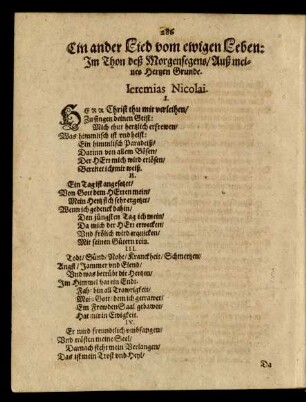 286
Ein ander Lied vom ewigen Leben:
Im Thon deß Morgensegens/ Auß mei-
nes Hertzen Grunde.
Ieremias Nicolai.
I.
HErr Christ thu mir verleihen/
Zu singen deinen Geist:
Mich thut hertzlich erfrewen/
Was himmlisch ist vnd heist:
Ein himmlisch Paradeiß/
Darinn von allem Bösen/
Der HErr mich wird erlösen/
Bereitet ich mir weiß.
II.
Ein Tag ist angesetzt/
Von Gott dem HErren mein/
Mein Hertz sich sehr ergetzet/
Wenn ich gedenck dahin/
Den jüngsten Tag ich mein/
Da mich der HErr erwecken/
Vnd frölich wird erquicken/
Mit seinen Gütern rein.
III.
Todt/ Sünd/ Nohe/ Kranckheit/ Schmertzen/
Angst/ Jammer vnd Elend/
Vnd was betrübt die Hertzen/
Im Himmel hat ein End:
Fahr hin all Trawrigkeit/
Mein Gott dem ich getrawet/
Ein Frewden Saal gebawet/
Hat mir in Ewigkeit.
IV.
Er wird freundtlich vmbfangen/
Vnd trösten meine Seel/
Darnach steht mein Verlangen/
Das ist mein Trost vnd Heyl/
Da